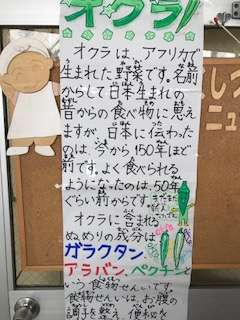 オクラ!
オクラは、アフリカで
生まれた野菜です。名前
からして日本生まれの
昔からの食べ物に思え
ますが、日本に伝わった
のは今から150年ほど
前です。よく食べられる
ようになったのは、50年
ぐらい前からです。
オクラに含まれる
ぬめりの成分は
ガラクタン、
アラバン、ペクチンと
いう食物せんいです。
食物せんいは、お腹の
調子を整え、便秘を